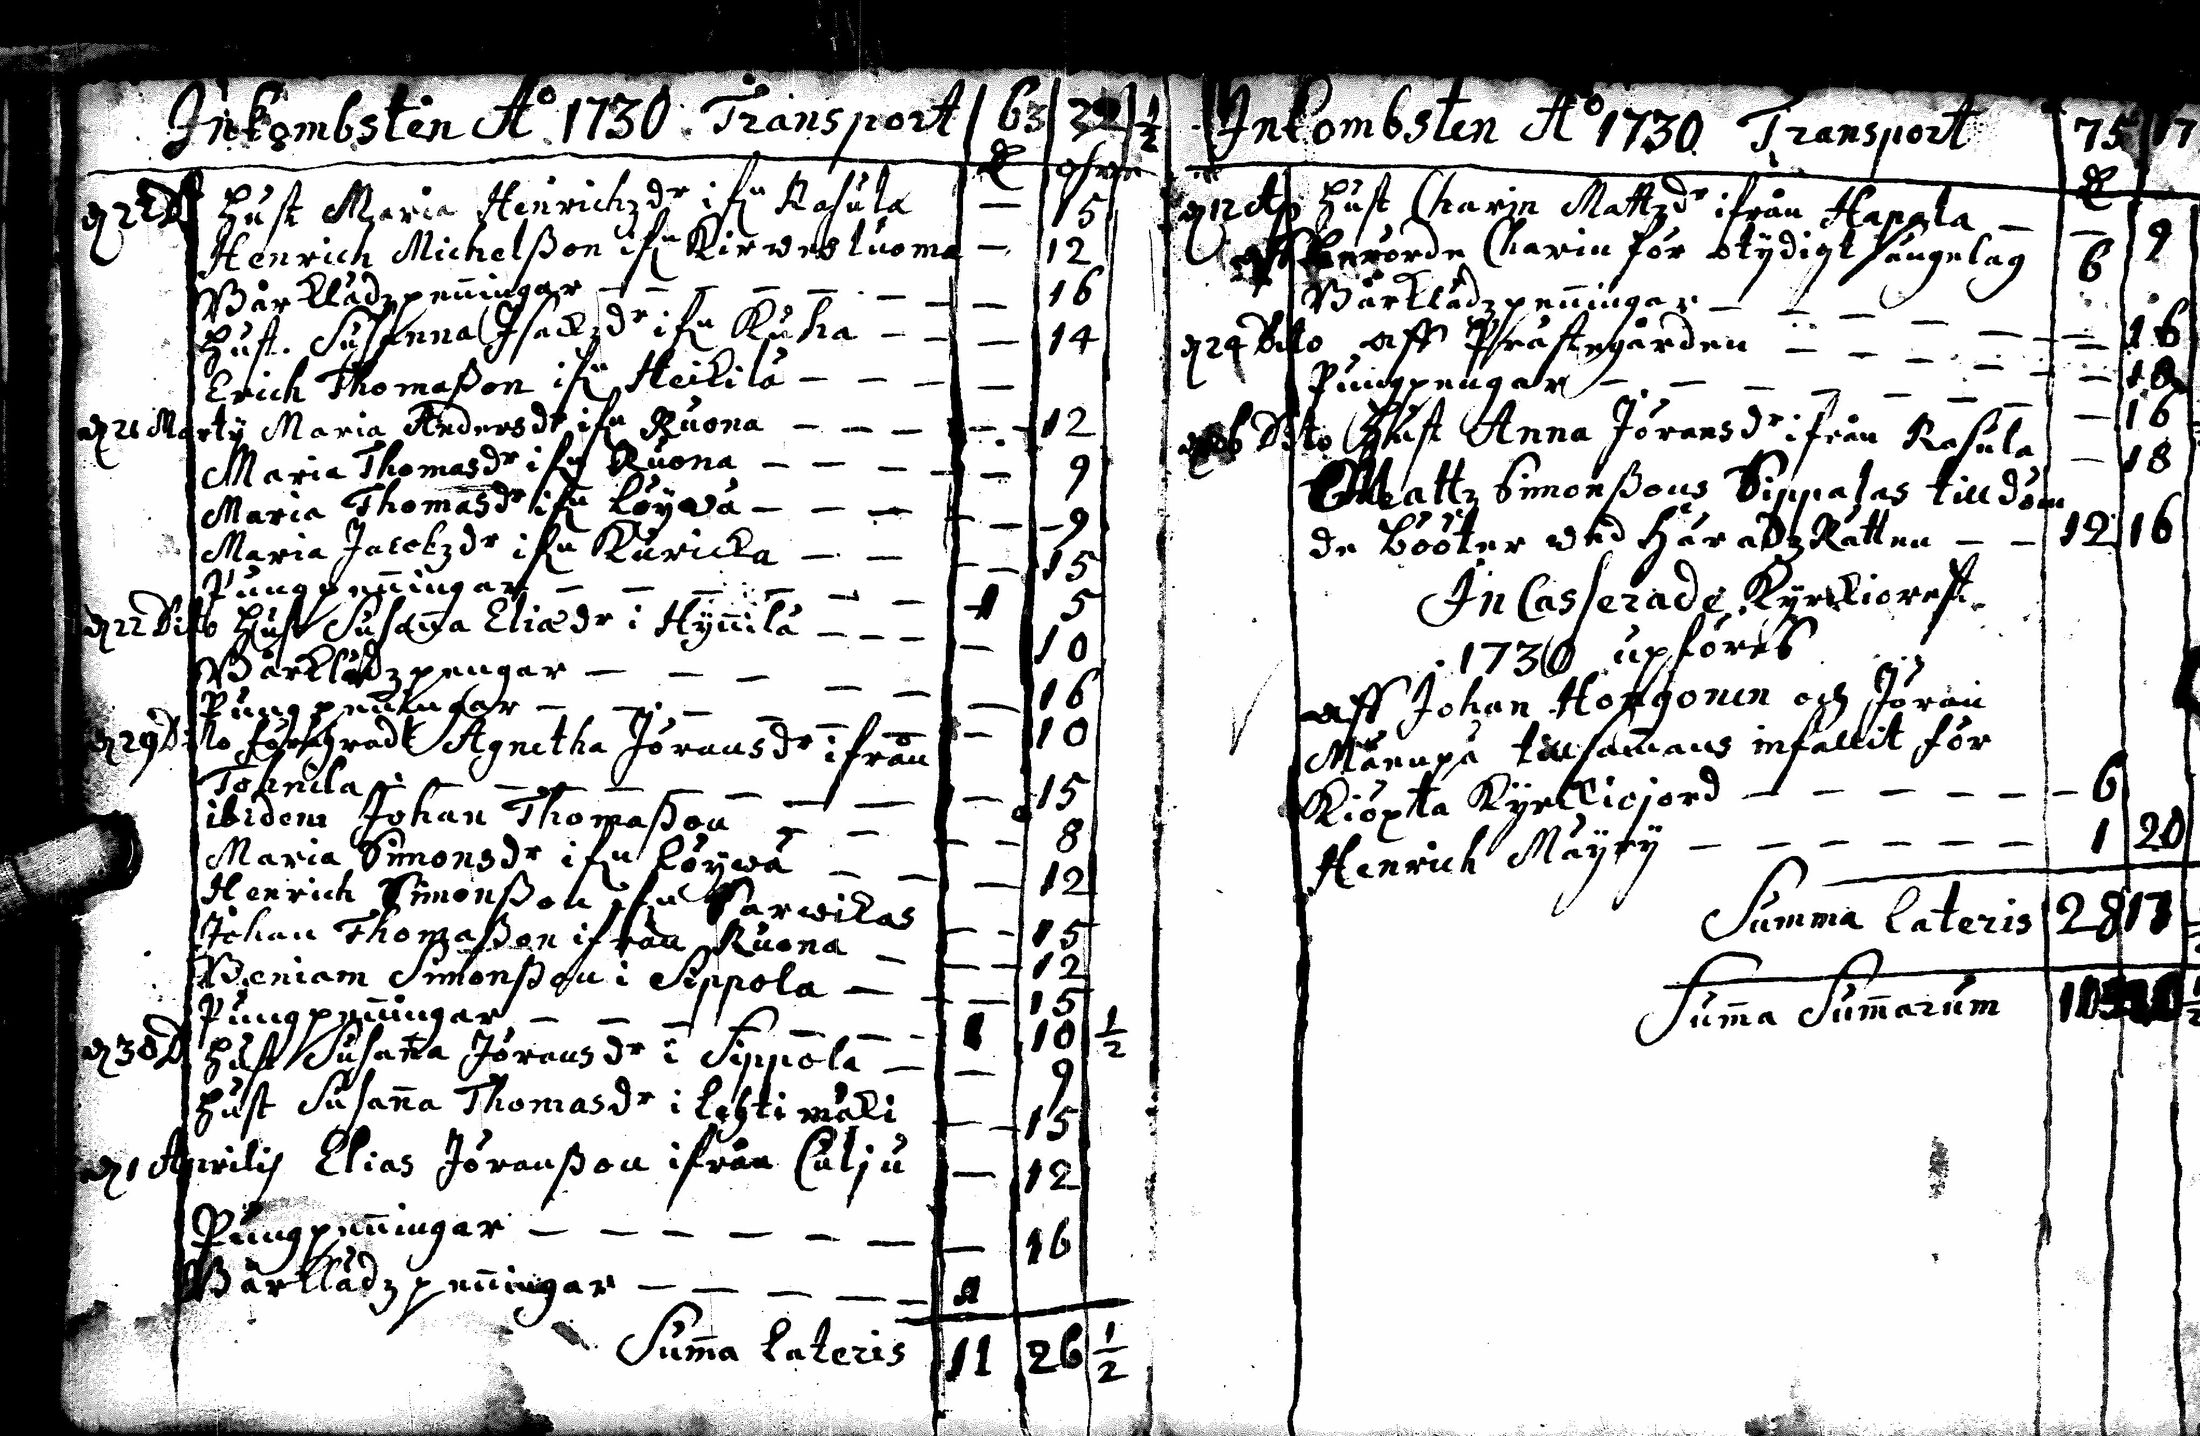 Inkombsten Aº 1730 Transport 63 22 1/2
öhre
Hust Maria Henrichzdr ifn Rasula — 15
Henrich Michelßon ifn Kirvesluoma — 12
Wårklädzpenningar — 16
Hust. Susanna Isackzdr ifn Kuha — 14
Erich Thomaßon ifn Heikilä —
d 21 Marty Maria Andersdr ifn Ruona — 12
Maria Thomasdr ifn Ruona — 9
Maria Thomasdr ifn Löywä — 9
Maria Jacobzdr ifn Kuricka — 15
Pungpenningar — 1 5
d 22 Dito Hust Susanna Eliædr i Hynnilä — 10
Wårklädzpengar — 16
Pungpenningar — 10
d 29 Dito Agnetha Jöransdr ifrån
— 15
ibidem Johan Thomaßon — 8
Maria Simonsdr ifn Löywä — 12
Henrich Simonßon ifn Sarwikas — 15
Johan Thomaßon ifrån Ruona — 12
Beniam Simonßon i Sippola — 15
Pungpenningar — 1 10 1/2
d 30 D Hust Susanna Jöransdr i Sippola — 9
Hust Susanna Thomasdr i Lehtimäki — 15
d 1 Aprilis Elias Jöranßon ifrån Culju — 12
Pungpenningar — 16
Wårklädzpenningar — 1
Summa Lateris 11 26 1/2
Inkombsten Aº 1730 Transport 75 17
d 12 Ap Hust Charin Mattzdr ifrån Hapala — 9
aff berörde Charin för otydigt sängelag 6
Wårklädzpenningar — 16
d 24 Dito aff Prästegården — 18
Pungpengar — 16
Dito Hust Anna Jöransdr ifrån Rasula — 18
Mattz Simonßons Sippalas tilldöm
de Bööter wid HäradzRätten — 12 16
In Casserade Kyrkiorest.
1730 upföres
aff Johan Hongonen och Jöran
Mäenpä tillsammans infallit för
Kiöpta Kyrkiojord — 6
Henrich Mäyry — 1 20
Summa Lateris 28 17
Summa Summarum